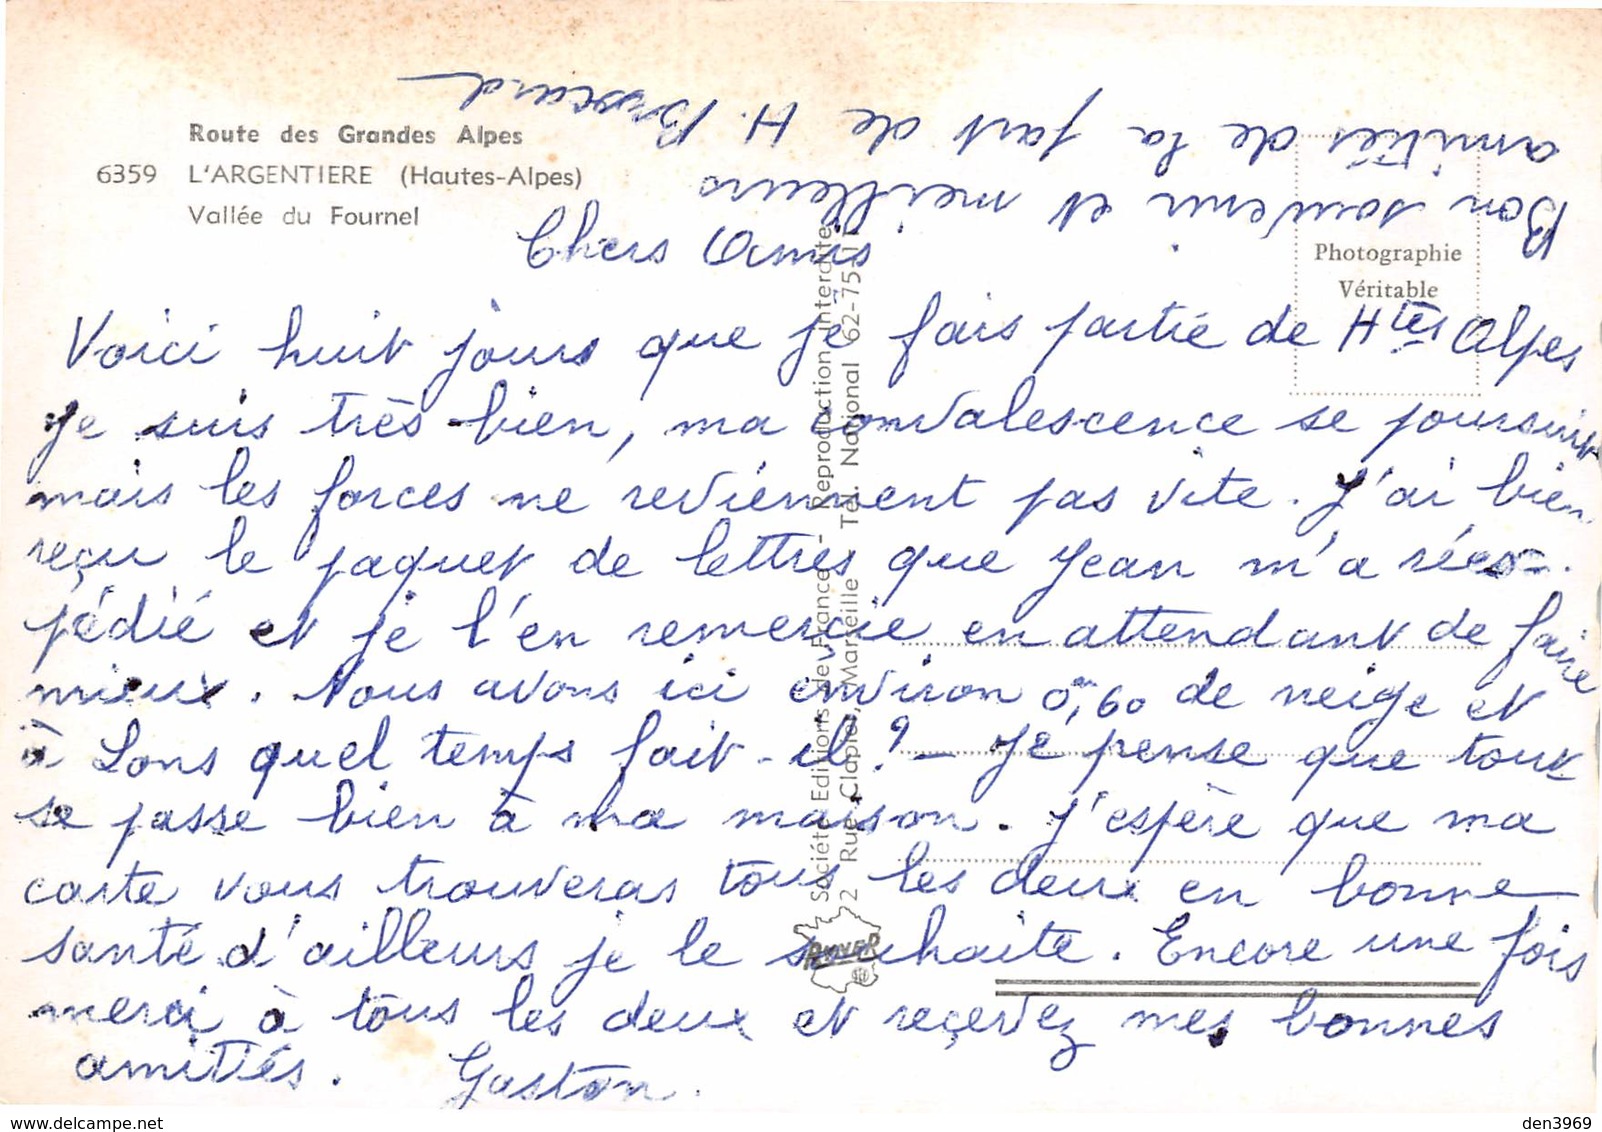 Route des Grandes Alpes
6359 L'ARGENTIERE (Hautes-Alpes)
Vallée du Fournel
Bon souvenir et meilleurs
amitiés de la part de H.
Photographie
Véritable
Chers Amis
Voici huit jours que je fais partie de Htes Alpes
Je suis très bien, ma convalescence se poursuit
mais les forces ne reviennent pas vite. J'ai bien
reçu le paquet de lettres que Jean m'a réex-
pédié et je l'en remercie en attendant de faire
mieux. Nous avons ici environ 0m,60 de neige et
à Lons quel temps fait-il ? - Je pense que tout
se passe bien à ma maison. J'espère que ma
carte vous trouveras tous les deux en bonne
santé d'ailleurs je le souhaite. Encore une fois
merci à tous les deux et reçevez mes bonnes
amitiés. Gaston.
Société Editions de France - Reproduction interdite
72 Rue Clapier, Marseille - Tél. National 62-75-11
RYNER
delcampe.net
den3969